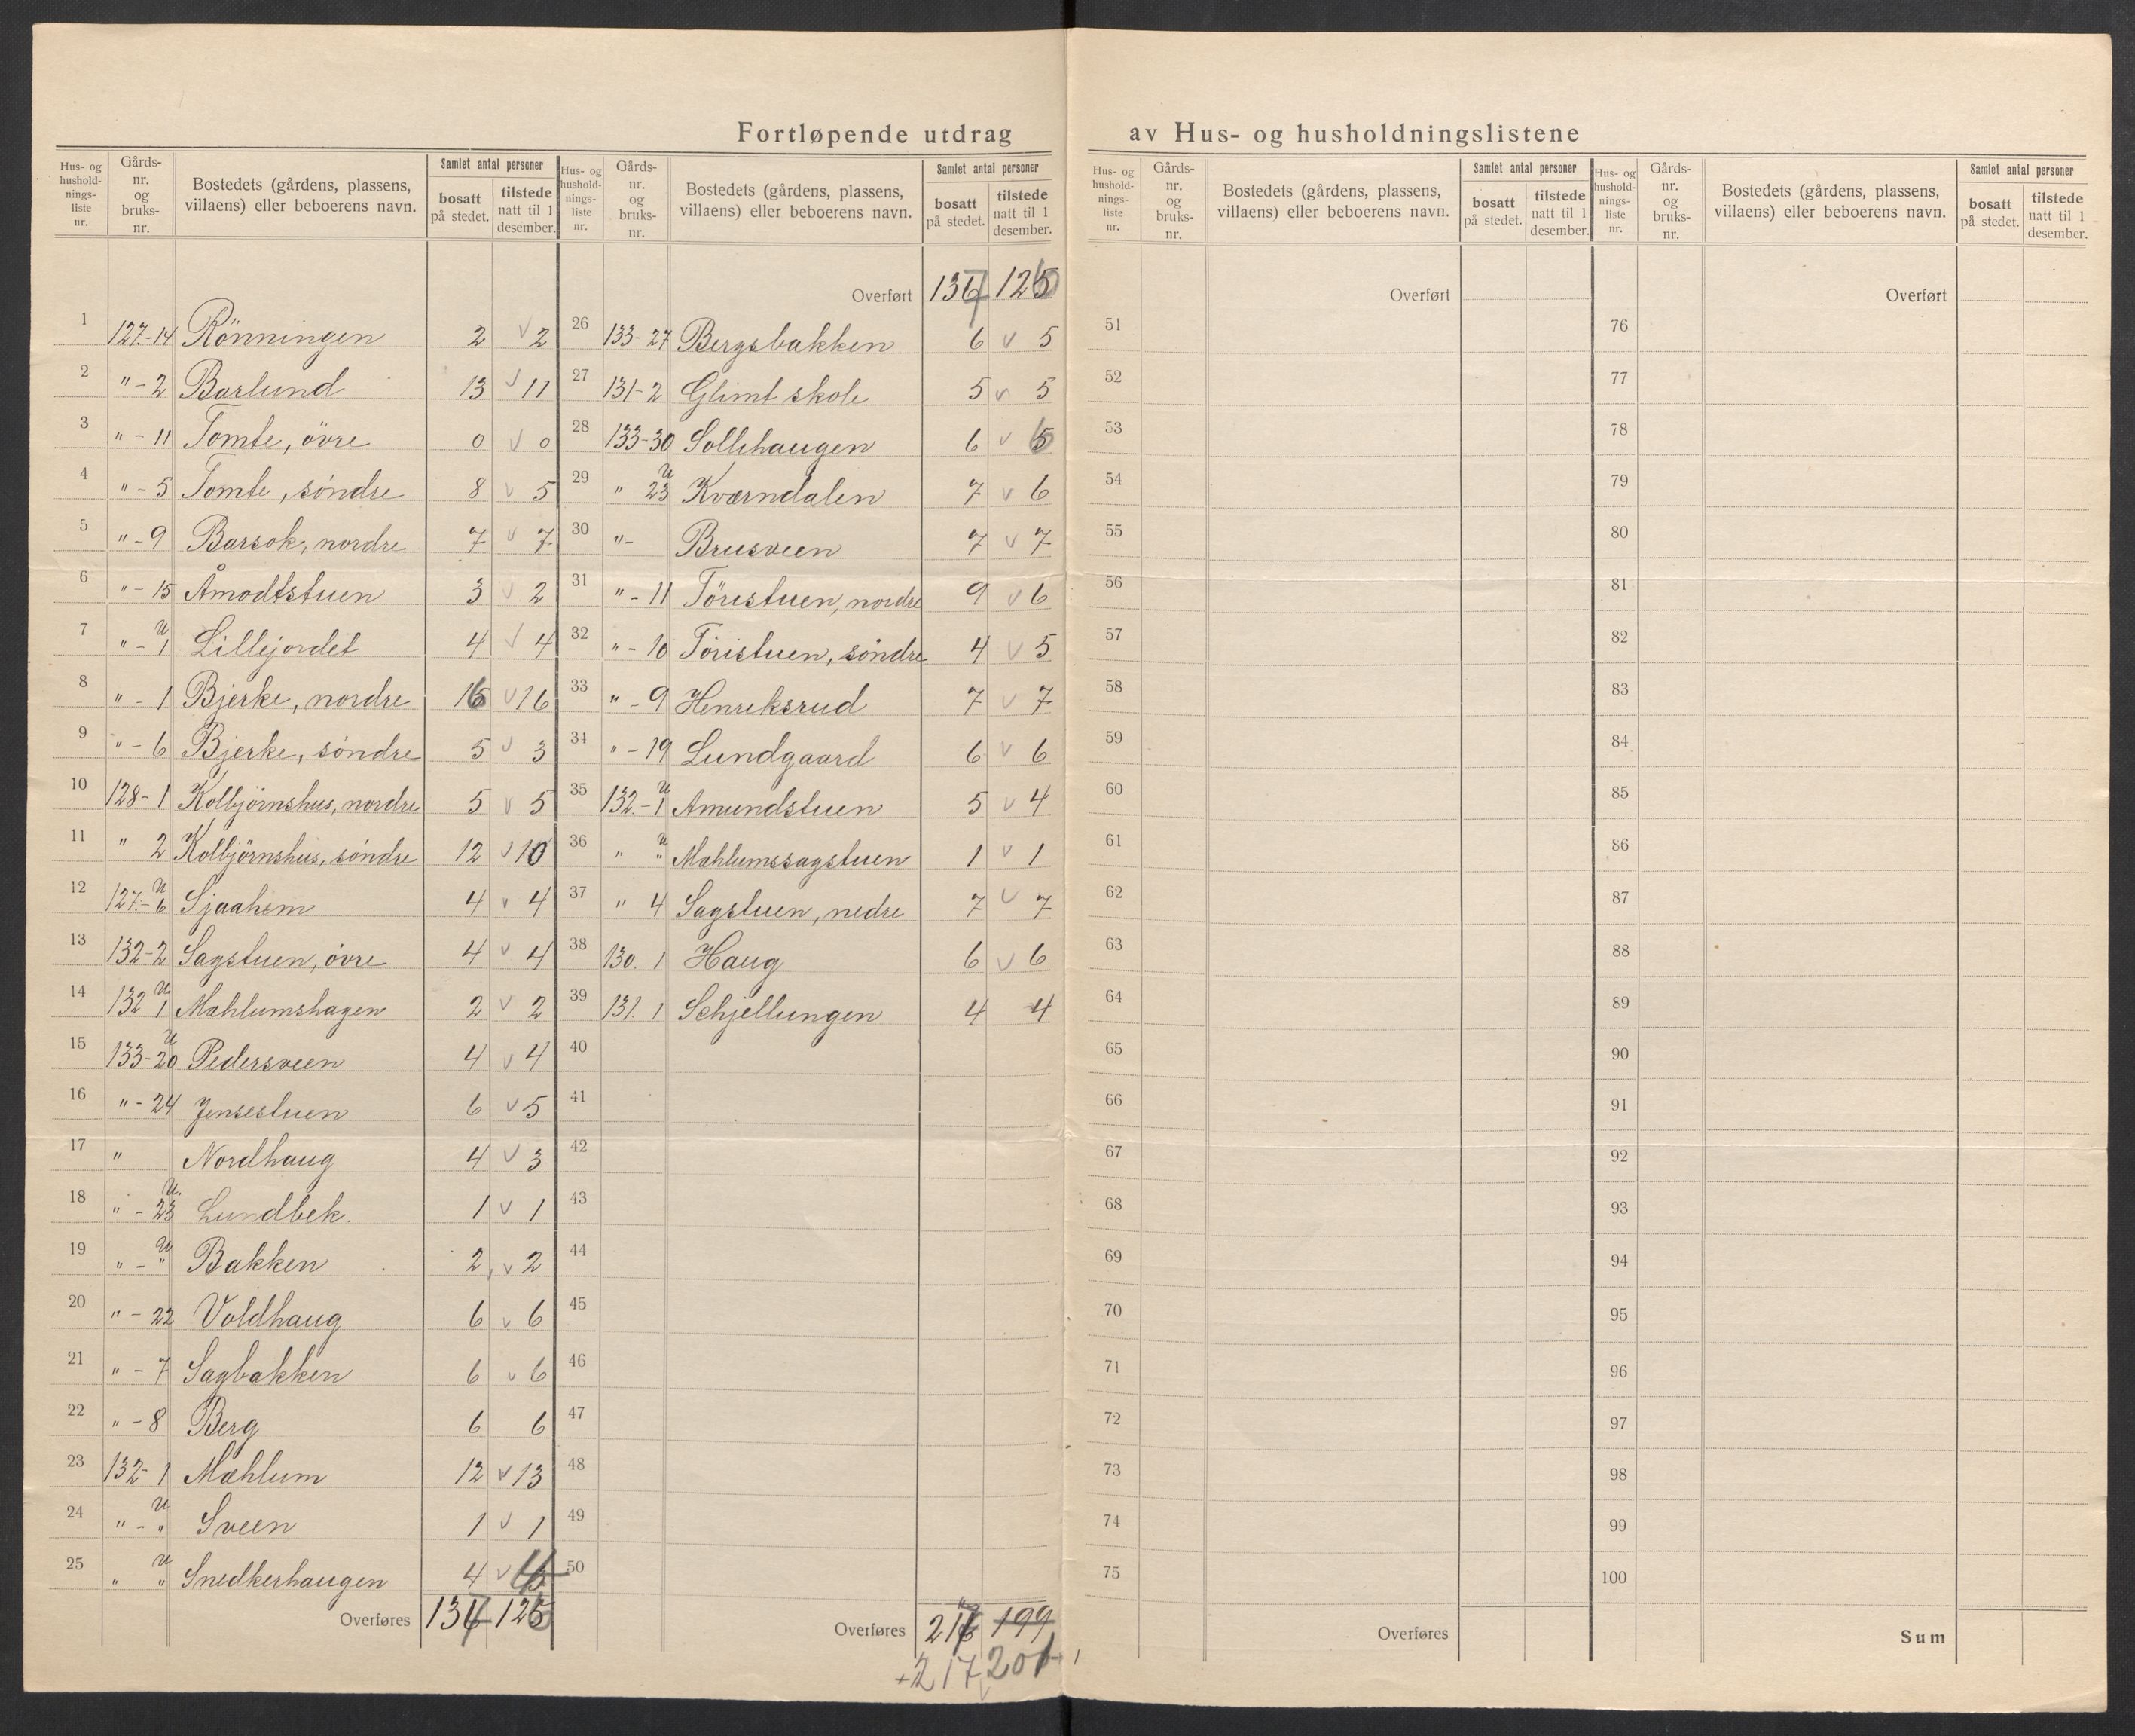 Fortløpende utdrag av Hus- og husholdningslistene
Hus- og husholdnings-liste nr. | Gårds-nr. og bruks-nr. | Bostedets (gårdens, plassens, villaens) eller beboerens navn. | Samlet antal personer: bosatt på stedet. | tilstede natt til 1 desember.
1 127.-14 Rönningen 2 v 2
2 " - 2 Barlund 13 v 11
3 " - 11 Tomte, övre 0 v 0
4 " - 5 Tomte, söndre 8 v 5
5 " - 9 Barsok, nordre 7 v 7
6 " - 15 Åmodtstuen 3 v 2
7 " - U 1 Lillejordet 4 v 4
8 " - 1 Bjerke, nordre 16 v 16
9 " - 6 Bjerke, söndre 5 v 3
10 128-1 Kolbjörnshus, nordre 5 v 5
11 " 2 Kolbjörnshus, söndre 12 v 10
12 127.- U 6 Sjaaheim 4 v 4
13 132-2 Sagstuen, övre 4 v 4
14 132 U 1 Mæhlumshagen 2 v 2
15 133- U 20 Pedersveen 4 v 4
16 " - 24 Jensestuen 6 v 5
17 " Nordhaug 4 v 3
18 " - U. 23 Lundbek. 1 v 1
19 " - U " Bakken 2 v 2
20 " - 22 Voldhaug 6 v 6
21 " - 7 Sagbakken 6 v 6
22 " - 8 Berg 6 6
23 132-1 Mæhlum 12 v 13
24 " - U " Sveen 1 v 1
25 " U " Snedkerhaugen 4 v
Overføres
Hus- og husholdnings-liste nr. | Gårds-nr. og bruks-nr. | Bostedets (gårdens, plassens, villaens) eller beboerens navn. | Samlet antal personer: bosatt på stedet. | tilstede natt til 1 desember.
Overført
26 133-27 Bergsbakken 6 v 5
27 131-2 Glimt skole 5 v 5
28 133-30 Sollihaugen 6 v
29 " U 23 Kværndalen 7 v 6
30 " - Brusveen 7 v 7
31 " - 11 Töristuen, nordre 9 v 6
32 " - 10 Töristuen, söndre 4 v 5
33 " - 9 Henriksrud 7 v 7
34 " - 19 Lundgaard 6 v 6
35 132.- U 1 Amundstuen 5 v 4
36 " U " Mæhlumssagstuen 1 v 1
37 " 4 Sagstuen, nedre 7 v 7
38 130. 1 Haug 6 v 6
39 131. 1 Schjellungen 4 4
40
41
42
43
44
45
46
47
48
49
50
Overføres 199
+217 201
Hus- og husholdnings-liste nr. | Gårds-nr. og bruks-nr. | Bostedets (gårdens, plassens, villaens) eller beboerens navn. | Samlet antal personer: bosatt på stedet. | tilstede natt til 1 desember.
Overført
51
52
53
54
55
56
57
58
59
60
61
62
63
64
65
66
67
68
69
70
71
72
73
74
75
Overføres
Hus- og husholdnings-liste nr. | Gårds-nr. og bruks-nr. | Bostedets (gårdens, plassens, villaens) eller beboerens navn. | Samlet antal personer: bosatt på stedet. | tilstede natt til 1 desember.
Overført
76
77
78
79
80
81
82
83
84
85
86
87
88
89
90
91
92
93
94
95
96
97
98
99
100
Sum